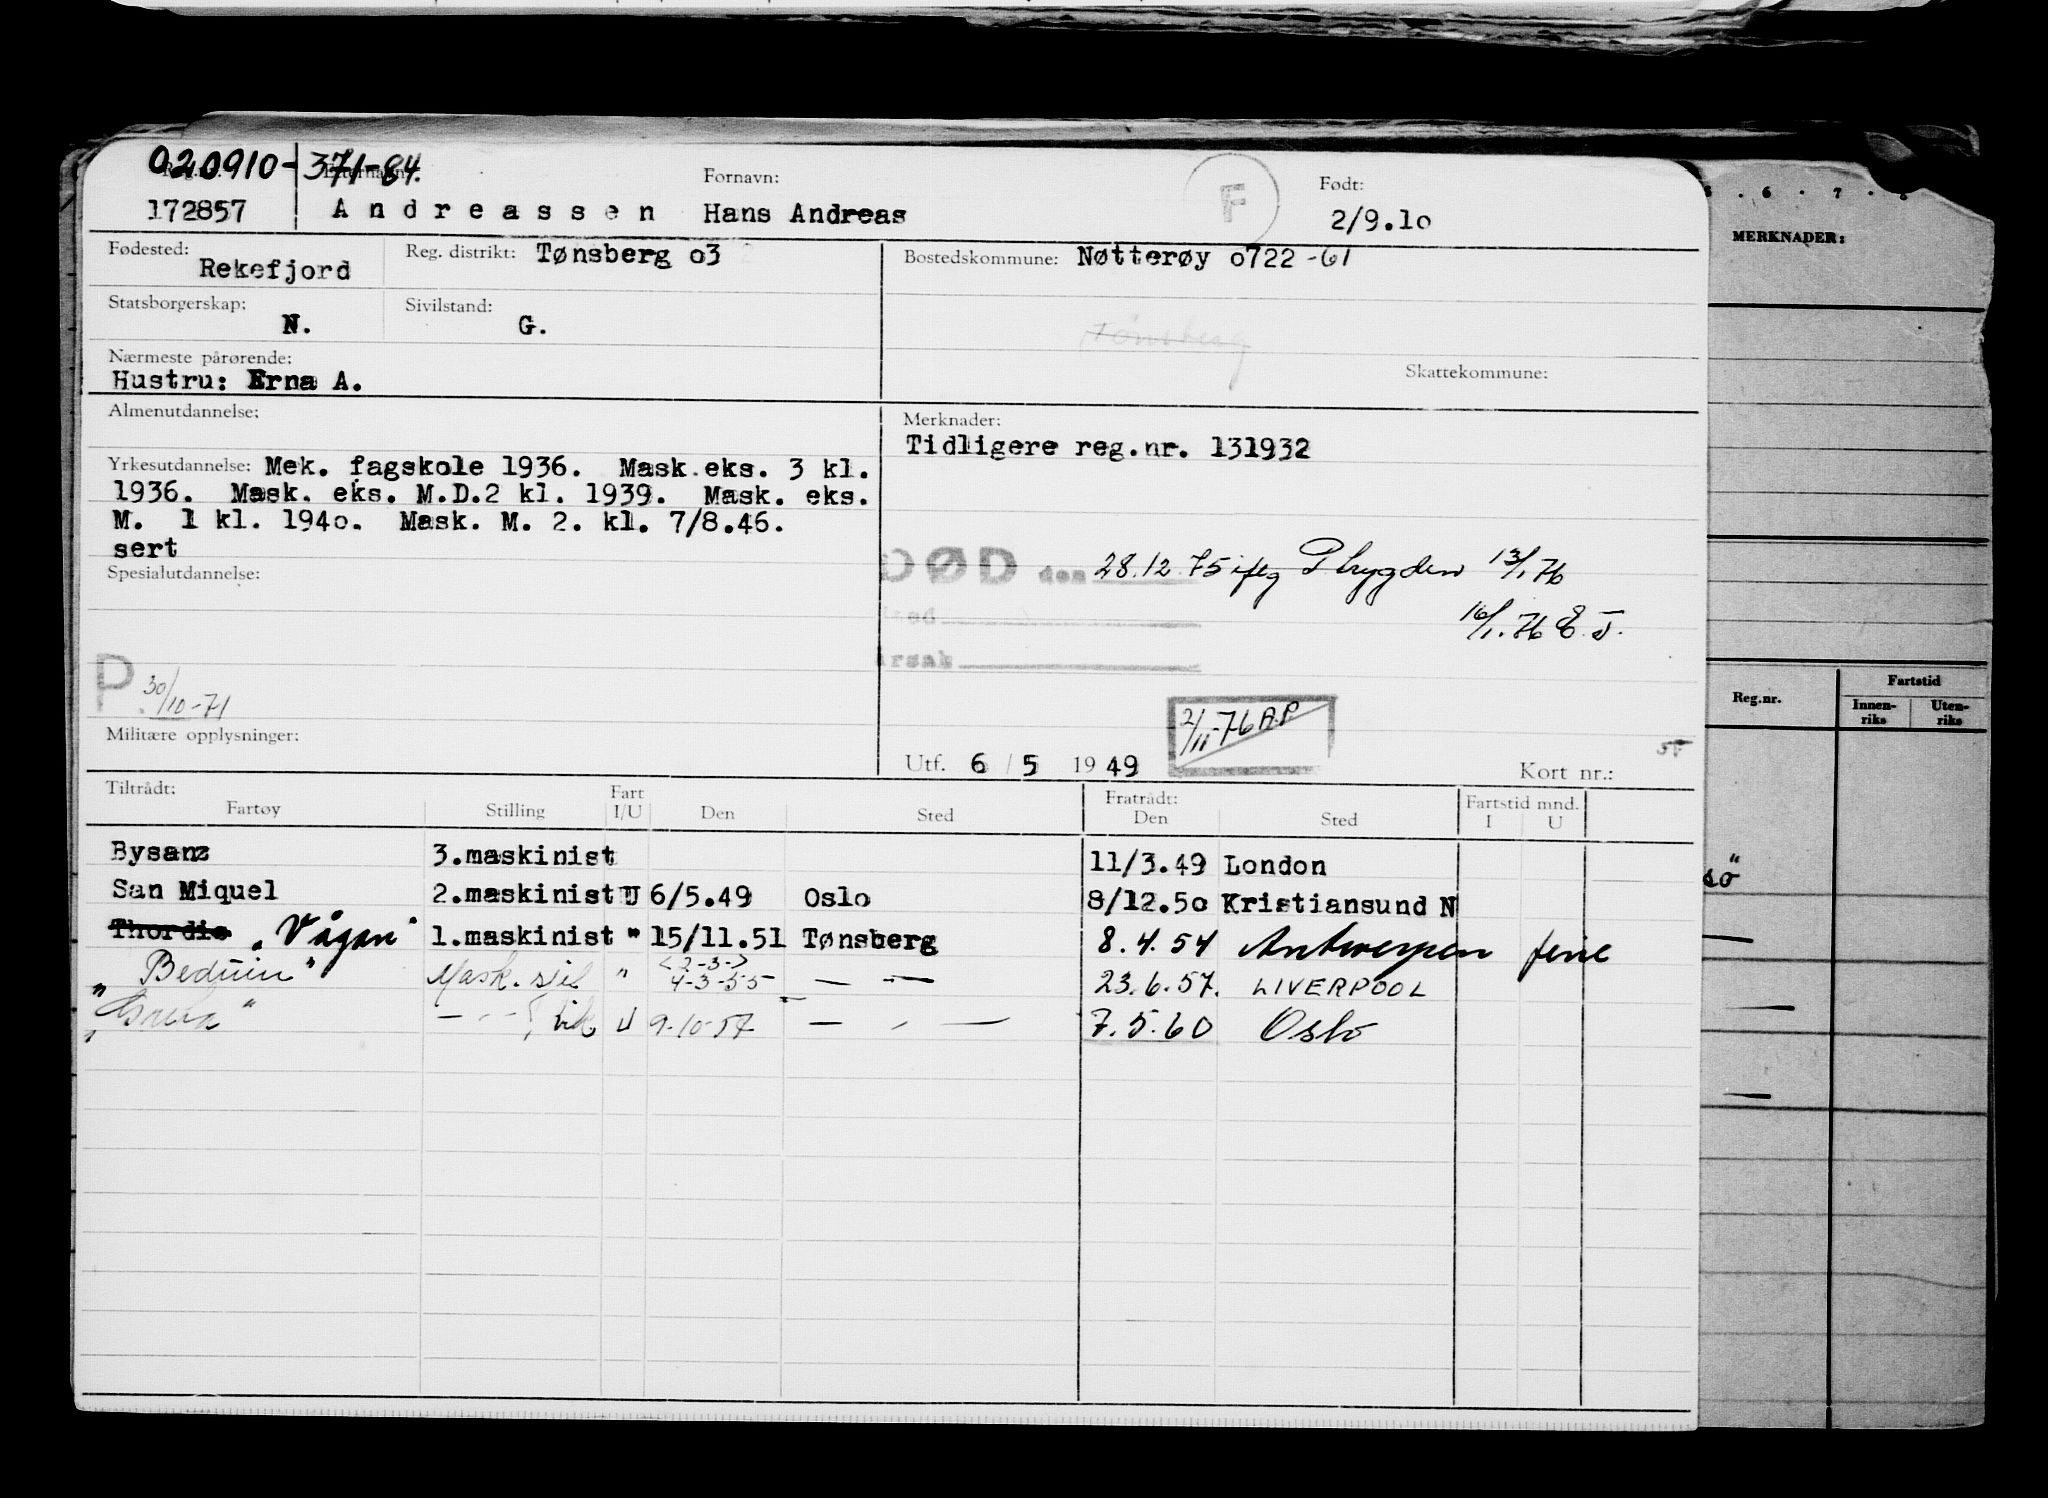 020910-371-84.
Fornavn:
F
Født:
172857
Andreassen
Hans Andreas
2/9.10
Fødested:
Rekefjord
Reg. distrikt: Tønsberg o3
Bostedskommune: Nøtterøy o722-61
Statsborgerskap:
N.
Sivilstand:
G.
Tønsberg
Nærmeste pårørende:
Hustru: Erna A.
Skattekommune:
Almenutdannelse:
Merknader:
Tidligere reg.nr. 131932
Yrkesutdannelse: Mek. fagskole 1936. Mask.eks. 3 kl.
1936. Mask. eks. M.D.2 kl. 1939. Mask. eks.
M. 1 kl. 194o. Mask. M. 2. kl. 7/8.46.
sert
DØD den 28.12.75 iflg P trygden 13/1.76
16/1.76 E.J.
Spesialutdannelse:
P. 30/10-71
Militære opplysninger:
2/11-76 A.P
Utf. 6/5 1949
Kort nr.:
Tiltrådt:
Fartøy
Stilling
Fart I/U
Den
Sted
Fratrådt:
Den
Sted
Fartstid mnd.
I U
Bysanz 3.maskinist 11/3.49 London
San Miquel 2.maskinist U 6/5.49 Oslo 8/12.5o Kristiansund N
Thordis "Vågan" 1.maskinist " 15/11.51 Tønsberg 8.4.54 Antwerpen ferie
"Beduin" Mask. " <2-3-> 4-3-55 — " — 23.6.57. LIVERPOOL
U 9-10-57 — " — 7.5.60 Oslo
6 . 7 . 8
MERKNADER:
Reg.nr.
Fartstid
Innen-
riks
Uten-
riks
sö"